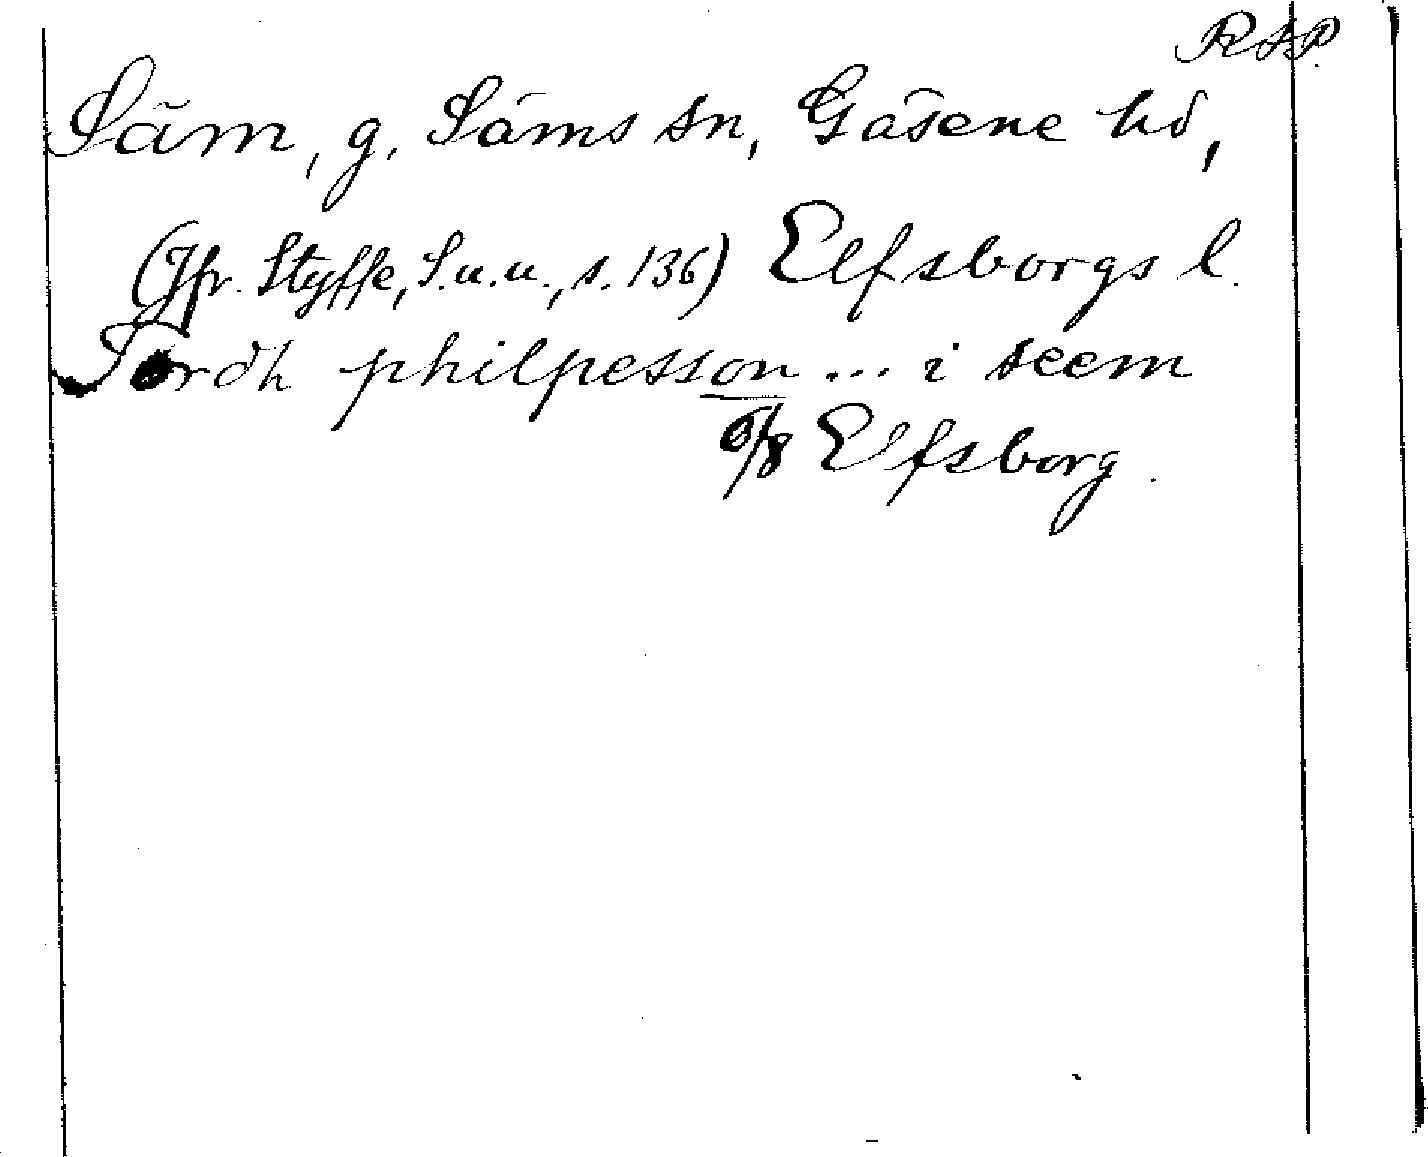 RAP.
Säm, g. Säms sn, Gäsene hd,
(Jfr. Styffe, S.u.u., s. 136) Elfsborgs l.
Tordh philpesson ... i seem
6/8 Elfsborg.